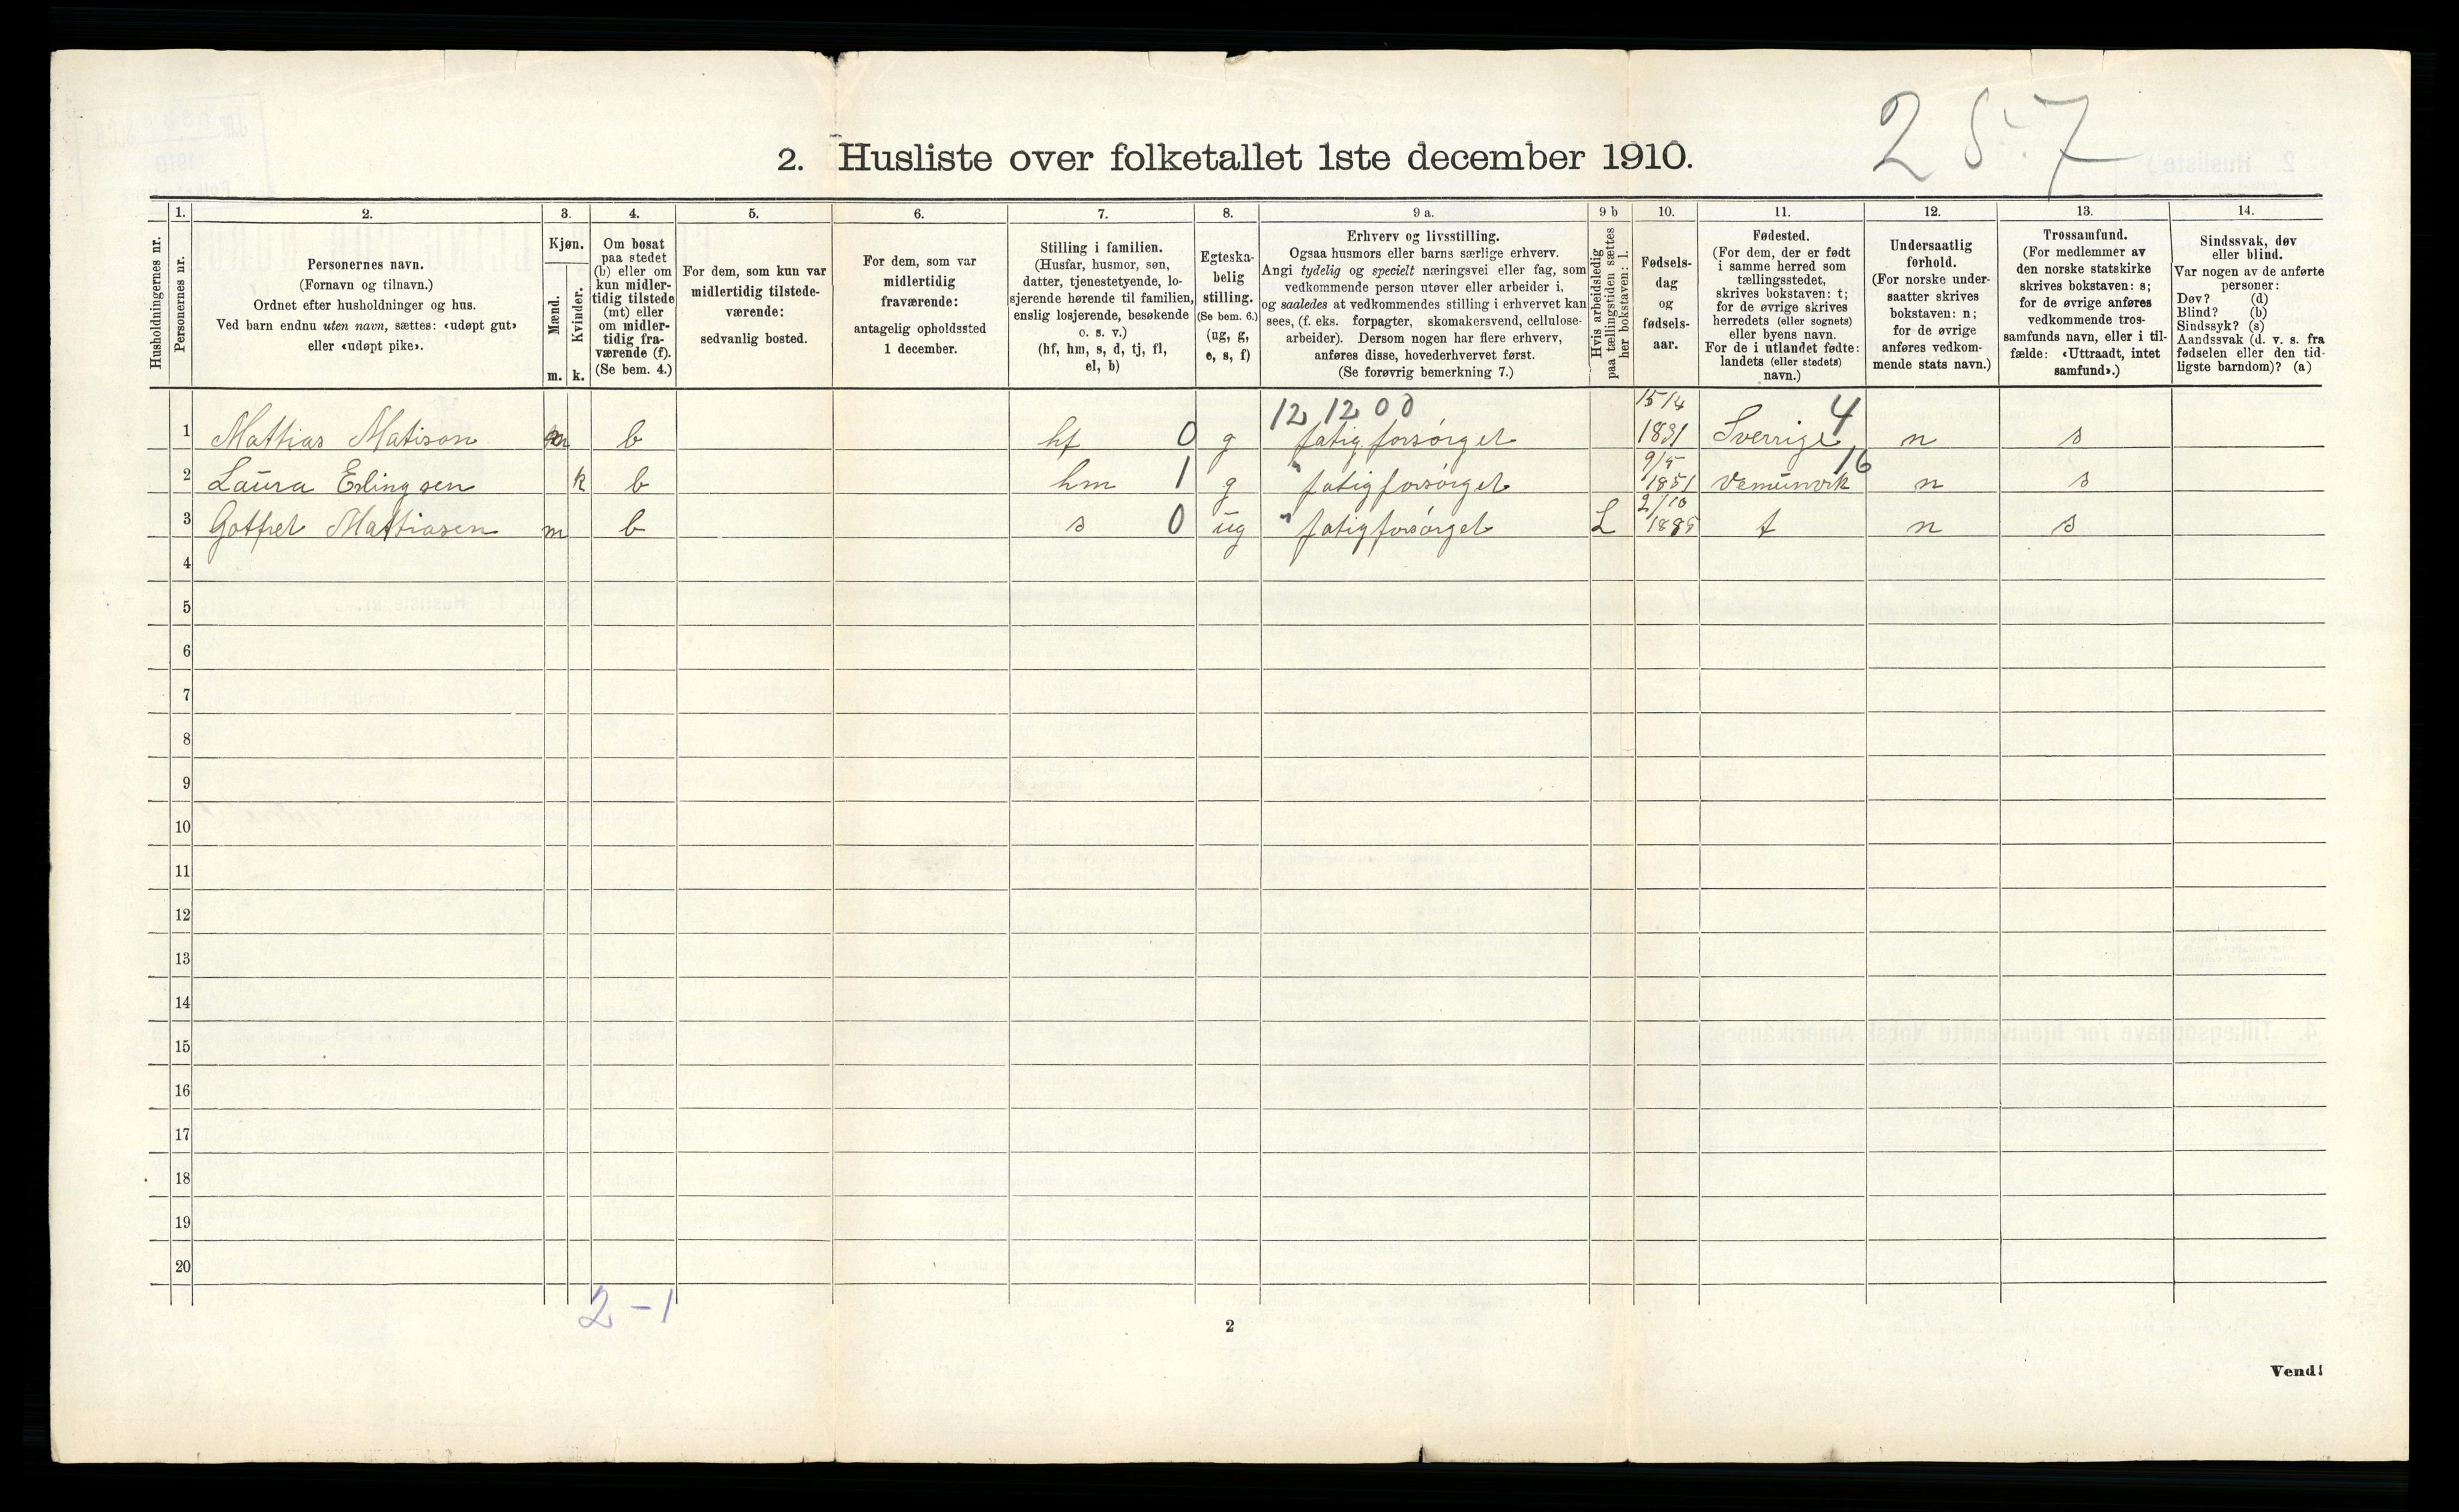 257
2. Husliste over folketallet 1ste december 1910.
1. 2. 3. 4. 5. 6. 7. 8. 9 a. 9 b 10. 11. 12. 13. 14.
Husholdningernes nr.
Personernes nr.
Personernes navn.
(Fornavn og tilnavn.)
Ordnet efter husholdninger og hus.
Ved barn endnu uten navn, sættes: «udøpt gut»
eller «udøpt pike».
Kjøn.
Mænd.
Kvinder.
m. k.
Om bosat
paa stedet
(b) eller om
kun midler-
tidig tilstede
(mt) eller
om midler-
tidig fra-
værende (f).
(Se bem. 4.)
For dem, som kun var
midlertidig tilstede-
værende:
sedvanlig bosted.
For dem, som var
midlertidig
fraværende:
antagelig opholdssted
1 december.
Stilling i familien.
(Husfar, husmor, søn,
datter, tjenestetyende, lo-
sjerende hørende til familien,
enslig losjerende, besøkende
o. s. v.)
(hf, hm, s, d, tj, fl,
el, b)
Egteska-
belig
stilling.
(Se bem. 6.)
(ug, g,
e, s, f)
Erhverv og livsstilling.
Ogsaa husmors eller barns særlige erhverv.
Angi tydelig og specielt næringsvei eller fag, som
vedkommende person utøver eller arbeider i,
og saaledes at vedkommendes stilling i erhvervet kan
sees, (f. eks. forpagter, skomakersvend, cellulose-
arbeider). Dersom nogen har flere erhverv,
anføres disse, hovederhvervet først.
(Se forøvrig bemerkning 7.)
Hvis arbeidsledig
paa tællingstiden sættes
her bokstaven: l.
Fødsels-
dag
og
fødsels-
aar.
Fødested.
(For dem, der er født
i samme herred som
tællingsstedet,
skrives bokstaven: t;
for de øvrige skrives
herredets (eller sognets)
eller byens navn.
For de i utlandet fødte:
landets (eller stedets)
navn.)
Undersaatlig
forhold.
(For norske under-
saatter skrives
bokstaven: n;
for de øvrige
anføres vedkom-
mende stats navn.)
Trossamfund.
(For medlemmer av
den norske statskirke
skrives bokstaven: s;
for de øvrige anføres
vedkommende tros-
samfunds navn, eller i til-
fælde: «Uttraadt, intet
samfund».)
Sindssvak, døv
eller blind.
Var nogen av de anførte
personer:
Døv? (d)
Blind? (b)
Sindssyk? (s)
Aandssvak (d. v. s. fra
fødselen eller den tid-
ligste barndom)? (a)
12 12 00 15/4 4
1 Mathias Matison m b hf 0 g fatigforsørget 1831 Sverrige n s
9/5 16
2 Laura Erlingsen k b hm 1 g " fatigforsørget 1851 Vemunvik n s
2/10
3 Gotfret Mattiasen m b s 0 ug " fatigforsørget L 1885 t n s
4
5
6
7
8
9
10
11
12
13
14
15
16
17
18
19
20
2 - 1
2
Vend!